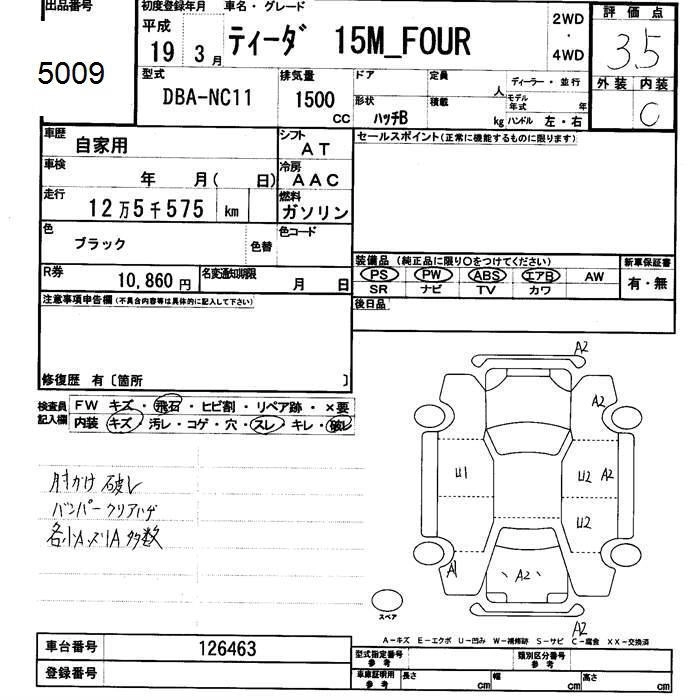 出品番号
5009
初度登録年月 車名・グレード
平成
19 3月 ティーダ 15M_FOUR
2WD
・
4WD
評価点
3.5
外装 内装
C
型式 DBA-NC11
排気量 1500 CC
ドア 定員 人 ディーラー・並行
形状 ハッチB 積載 kg モデル年式 年
ハンドル 左・右
車歴 自家用
シフト AT
セールスポイント(正常に機能するものに限ります)
車検 年 月( 日)
冷房 AAC
走行 12万5千575 km
燃料 ガソリン
色 ブラック 色替
色コード
装備品 (純正品に限り○をつけてください)
新車保証書
PS PW ABS エアB AW
有・無
SR ナビ TV カワ
R券 10,860円
名変通知期限 月 日
後日品
注意事項申告欄(不具合内容等は具体的に記入して下さい)
修復歴 有〔箇所 〕
検査員記入欄
FW キズ・飛石・ヒビ割・リペア跡・×要
内装 キズ・汚レ・コゲ・穴・スレ・キレ・破レ
肘かけ 破レ
バンパークリアハゲ
各小A.ズリA多数
A2
A2
U1 U2 A2
U2
A1
A2
A2
スペア
A-キズ E-エクボ U-凹み W-補修跡 S-サビ C-腐食 XX-交換済
車台番号 126463
登録番号
型式指定番号 参考
類別区分番号 参考
車庫証明用 参考
長さ cm 幅 cm 高さ cm